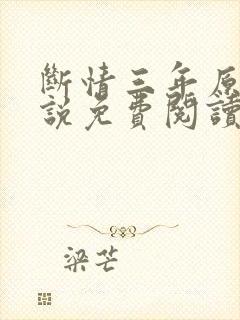 斷情三年原
説免費閱讀
梁芒